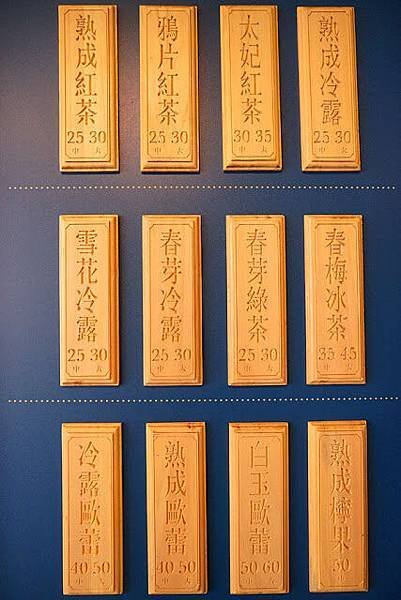 熟成紅茶
25 30
中 大
鴉片紅茶
25 30
中 大
太妃紅茶
30 35
中 大
熟成冷露
25 30
中 大
雪花冷露
25 30
中 大
春芽冷露
25 30
中 大
春芽綠茶
25 30
中 大
春梅冰茶
35 45
中 大
冷露歐蕾
40 50
中 大
熟成歐蕾
40 50
中 大
白玉歐蕾
50 60
中 大
熟成檸果
50